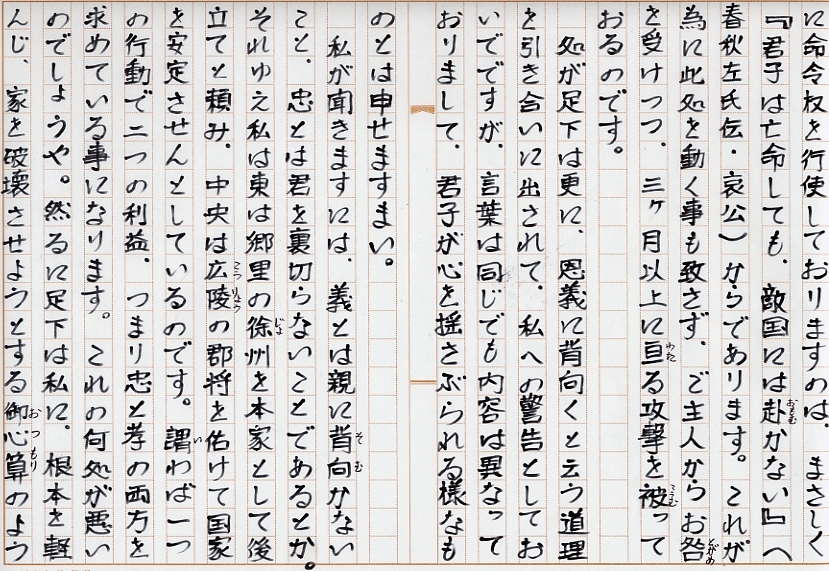 に命令权を行使しておりますのは、まさしく
『君子は亡命しても、敵国には赴かない』（
春秋左氏伝・哀公）からであります。これが
為に此処を動く事も致さず、ご主人からお咎
を受けつつ、三ヶ月以上に亘る攻撃を被って
おるのです。
処が足下は更に、恩義に背向くと云う道理
を引き合いに出されて、私への警告としてお
いでですが、言葉は同じでも内容は異なって
おりまして、君子が心を揺さぶられる様なも
のとは申せますまい。
私が聞きますには、義とは親に背向かない
こと、忠とは君を裏切らないことであるとか。
それゆえ私は東は郷里の徐州を本家として後
立てと頼み、中央は広陵の郡将を佑けて国家
を安定させんとしているのです。謂わば一つ
の行動で二つの利益、つまり忠と孝の両方を
求めている事になります。これの何処が悪い
のでしょうや。然るに足下は私に、根本を軽
んじ、家を破壊させようとする御心算のよう